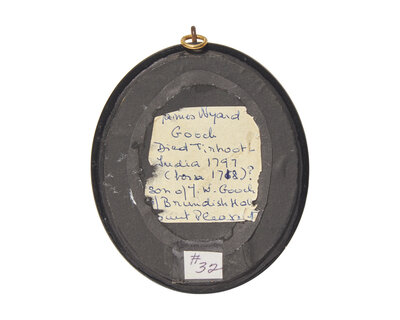 James Wyard
Gooch
Died Tirhoot
India 1797
(born 1768)?
son of J. W. Gooch
of Brundish
Mount Pleasant
#32